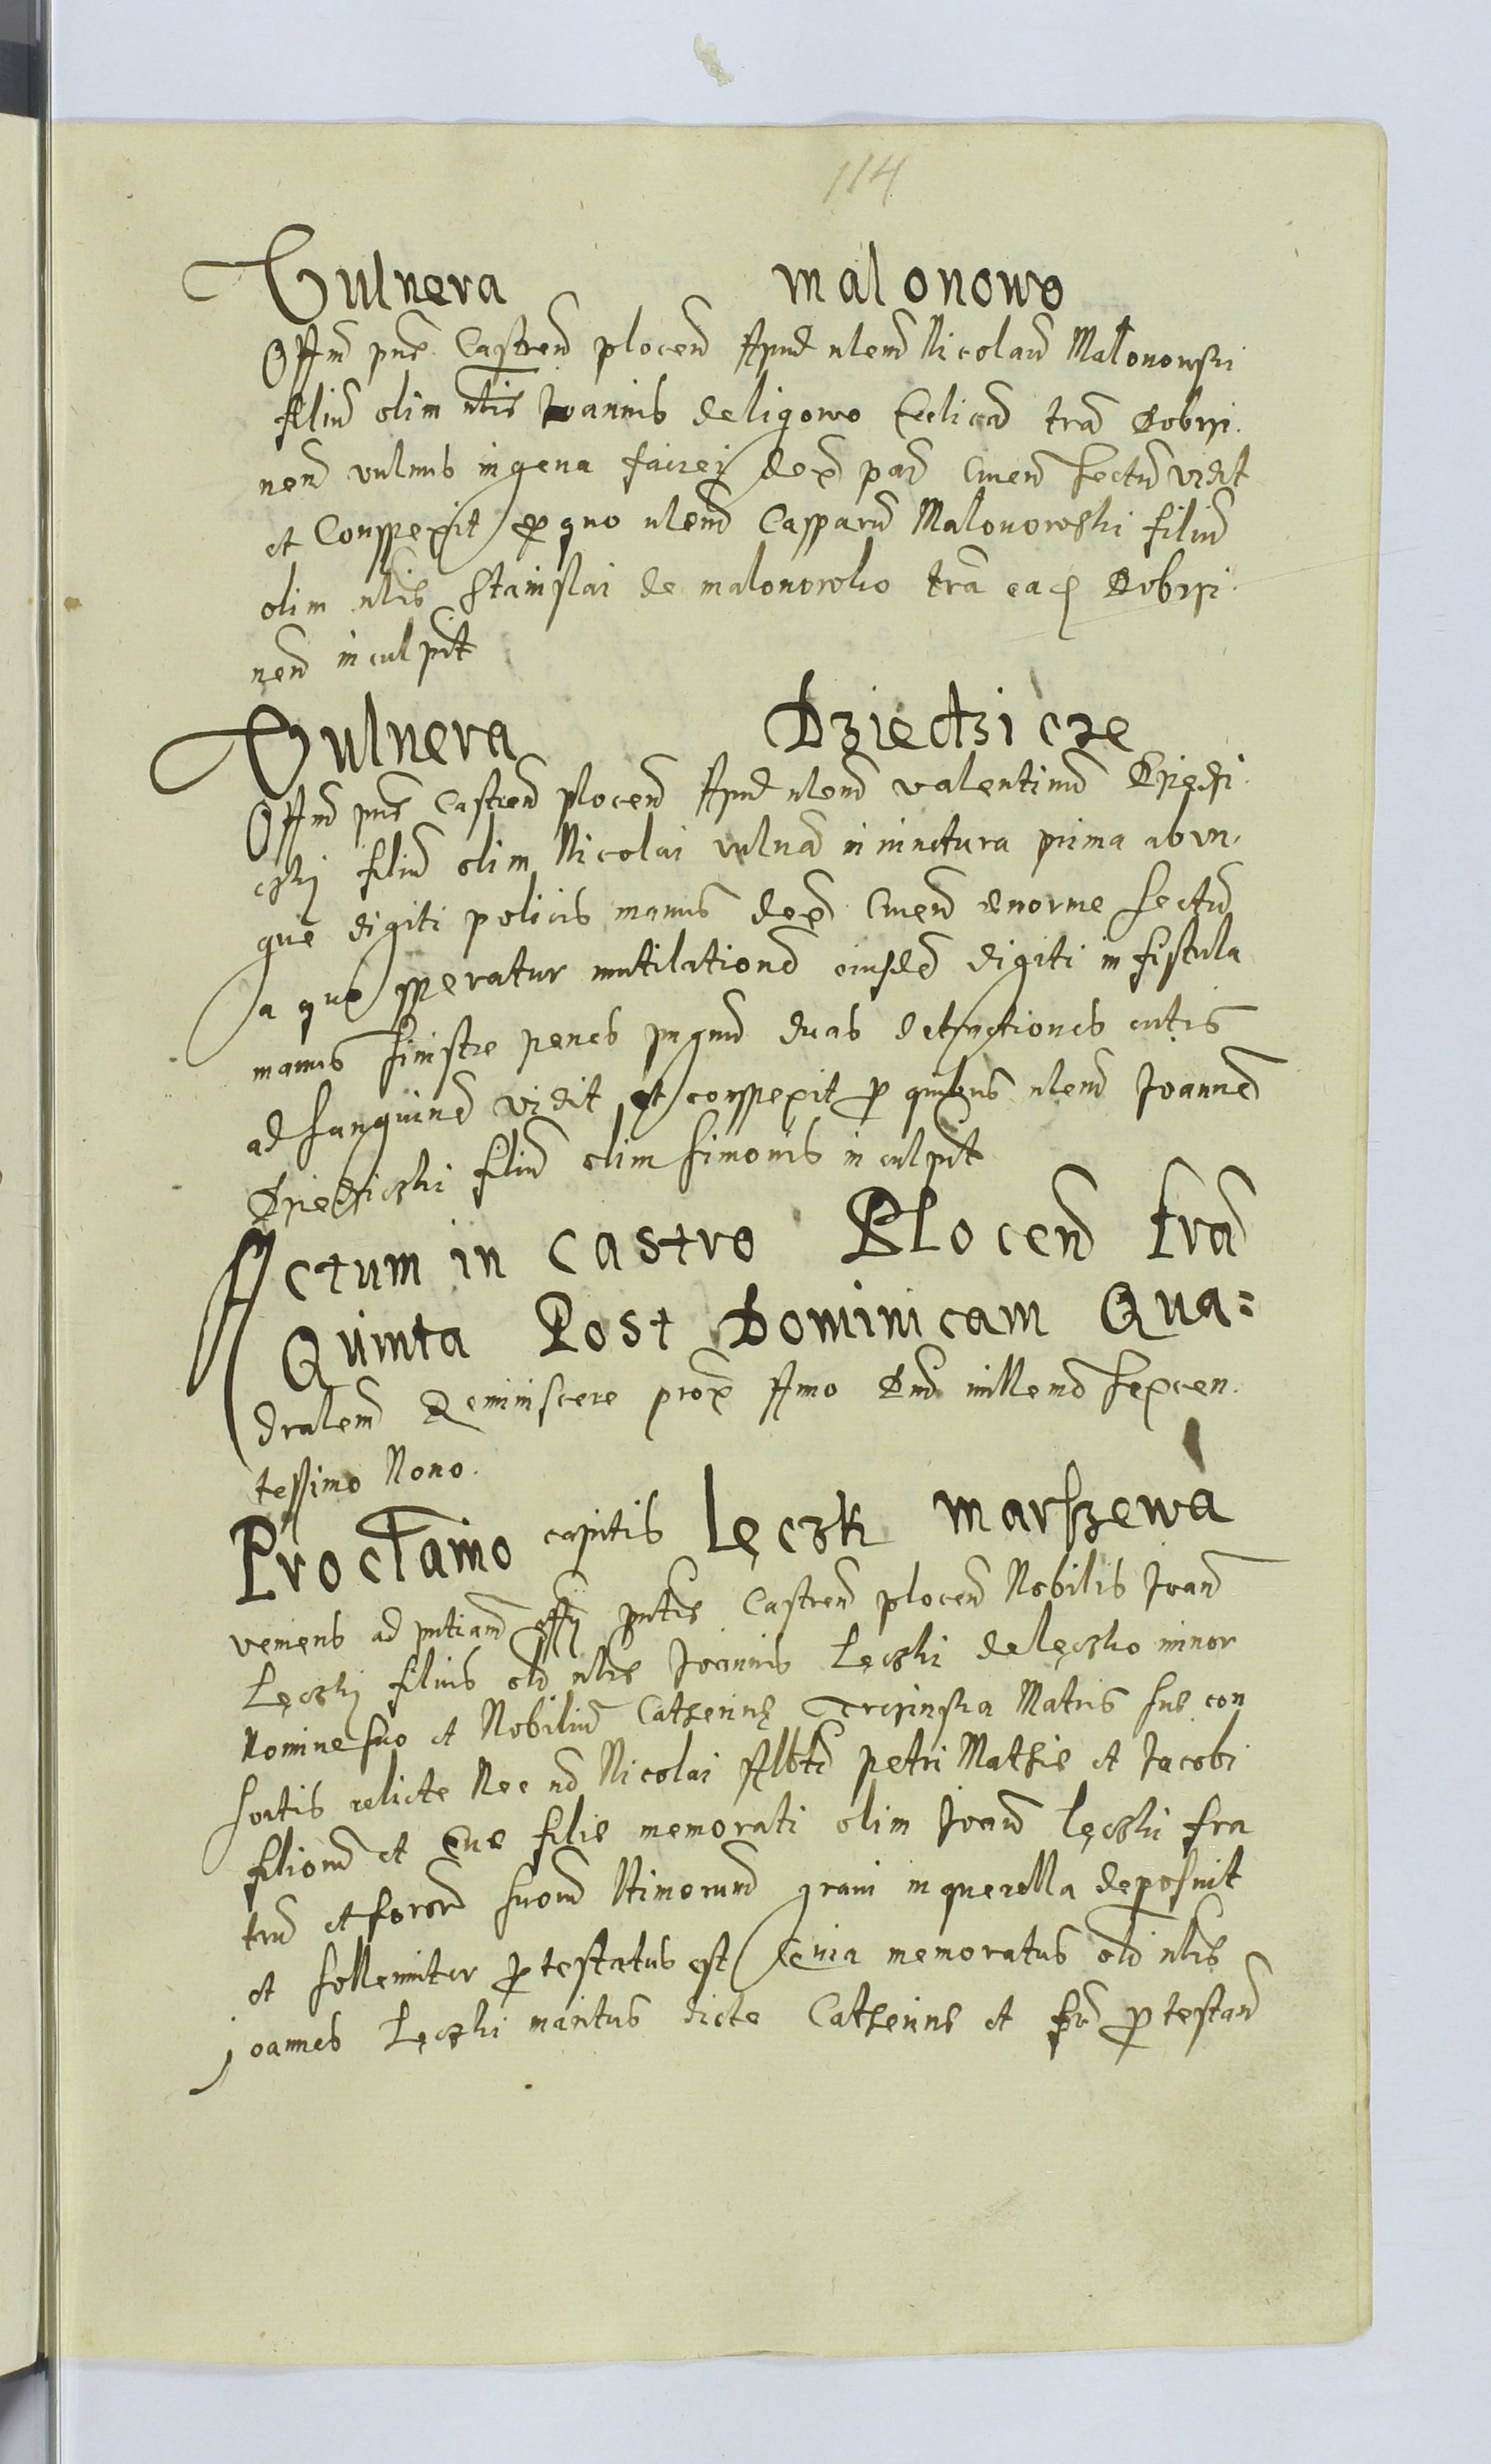 114
Vulnera malonowo
Offm pns Castren plocen Apud nlem Nicolaum Malonowski
filium olim nlis Joannis de ligowo trã Dobrzi.
nen vulnus in gena faciei dex par cruen sectum vidit
et Conspexit pro quo nlem Casparum Malonowski filium
olim nlis Stanislai de malonowko trã Dobrzi.
nen inculpat
Vulnera Dziedzicze
Offm pns Castren plocen Apud nlem valentinum Dziedzi
czki filium olim Nicolai vulnus in iunctura prima ab un
gue digiti policis manus dex cruen enorme sectum
a quo speratur mutilationem eiusdem digiti in fistula
manus sinistre penes pugnum duas cutis
ad sanguinem vidit et conspexit pro quibus nlem Joannem
Dziedziczki filium olim Simonis inculpat
Actum in Castro Plocen fria
Quinta Post Dominicam Qua=
dralem Reminiscere prox Anno Dni millemo Sexcen.
tessimo Nono.
Proclamo capitis Lęczk marszewa
veniens ad pntiam offy pntis Castren plocen Nobilis Joan
Lęczki filius old nlis Joannis Lęczki de lęczko minor
Nomine suo et Nobilium Catherinę Matris sue con
sortis relicte Nec no Nicolai Albti Petri Mathie et Jacobi
filiorum et Eve filie memorati olim Joan lęczki fra
trum et sororum suorum gravi in querella deposuit
et sollemniter protestatus est memoratus old nlis
joannes Lęczki maritus dicte Catherine et protestan